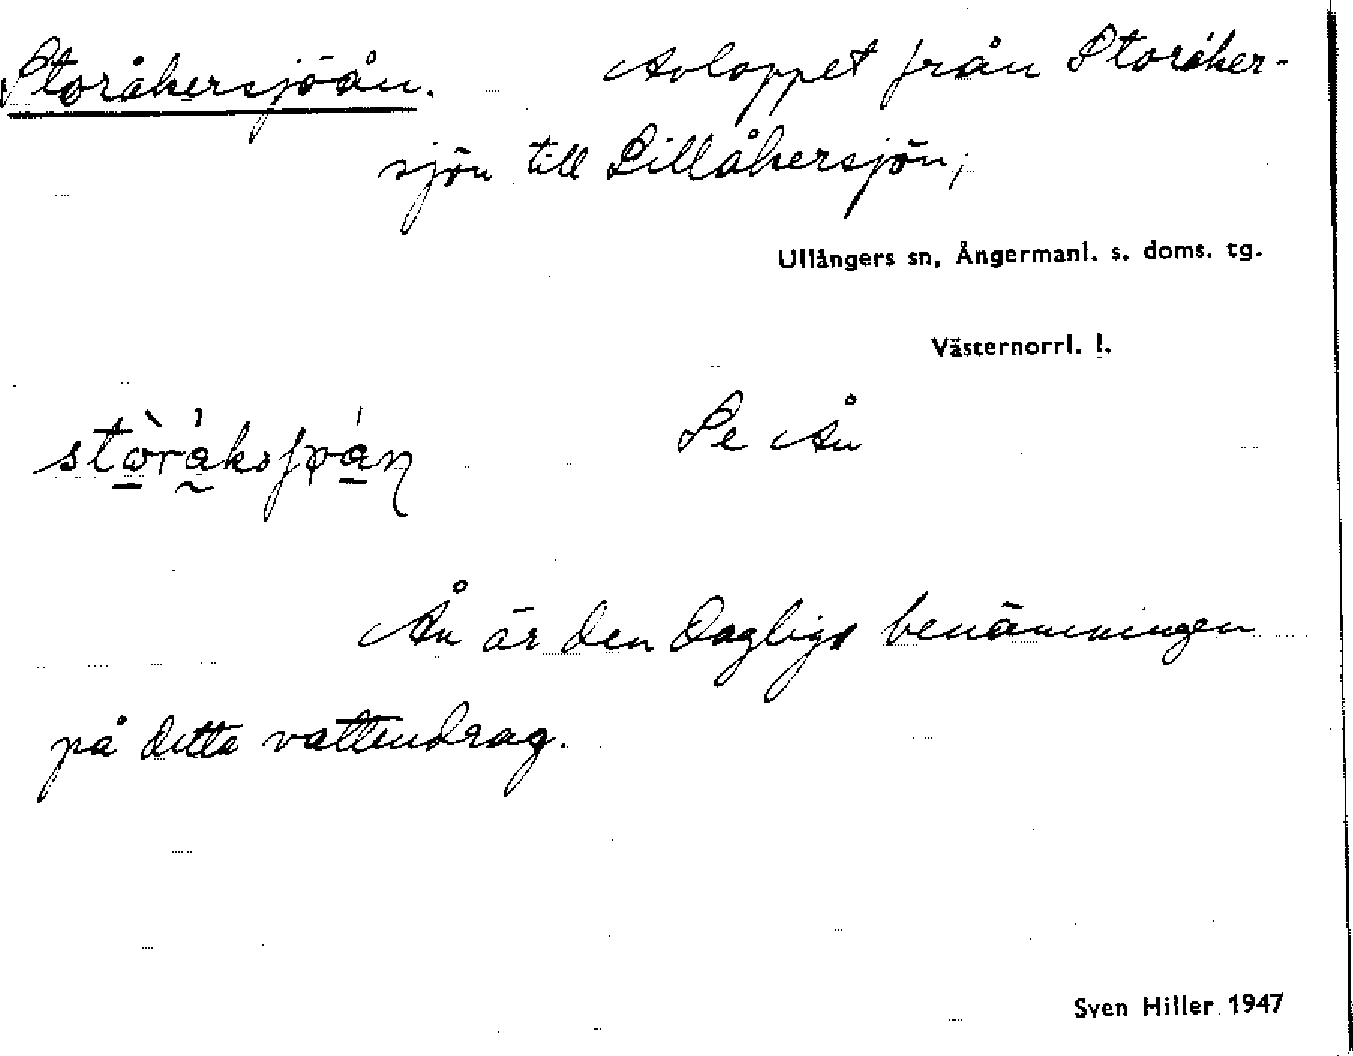 Storåkersjöån. Avloppet från Storåker-
sjön till Lillåkersjön,
Ullångers sn, Ångermanl. s. doms. tg.
Västernorrl. l.
Se Ån
Ån är den dagliga benämningen
på detta vattendrag.
Sven Hiller 1947